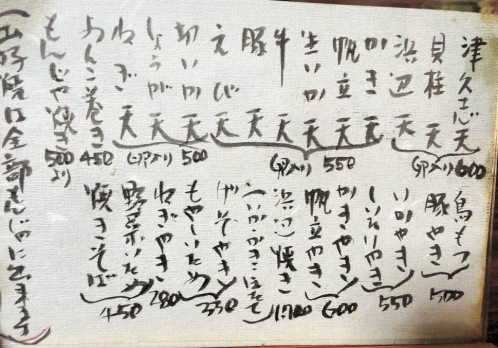 津久志天
貝柱天
浜辺天
(卵入り) 600
かき天
帆立天
生いか天
牛天
豚天
えび天
(卵入り) 550
切いか天
しょうが天
ねぎ天
(卵入り) 500
あんこ巻き 450
もんじゃ焼き 500より
(お好焼は全部もんじゃに出来ます)
鳥もつ
豚やき
500
いかやき
しいたけやき
550
かきやき
帆立やき
600
浜辺焼き
(いか・かき・ほたて)
げそやき
もやしいため
350
ねぎやき 280
野菜いため
焼きそば
450